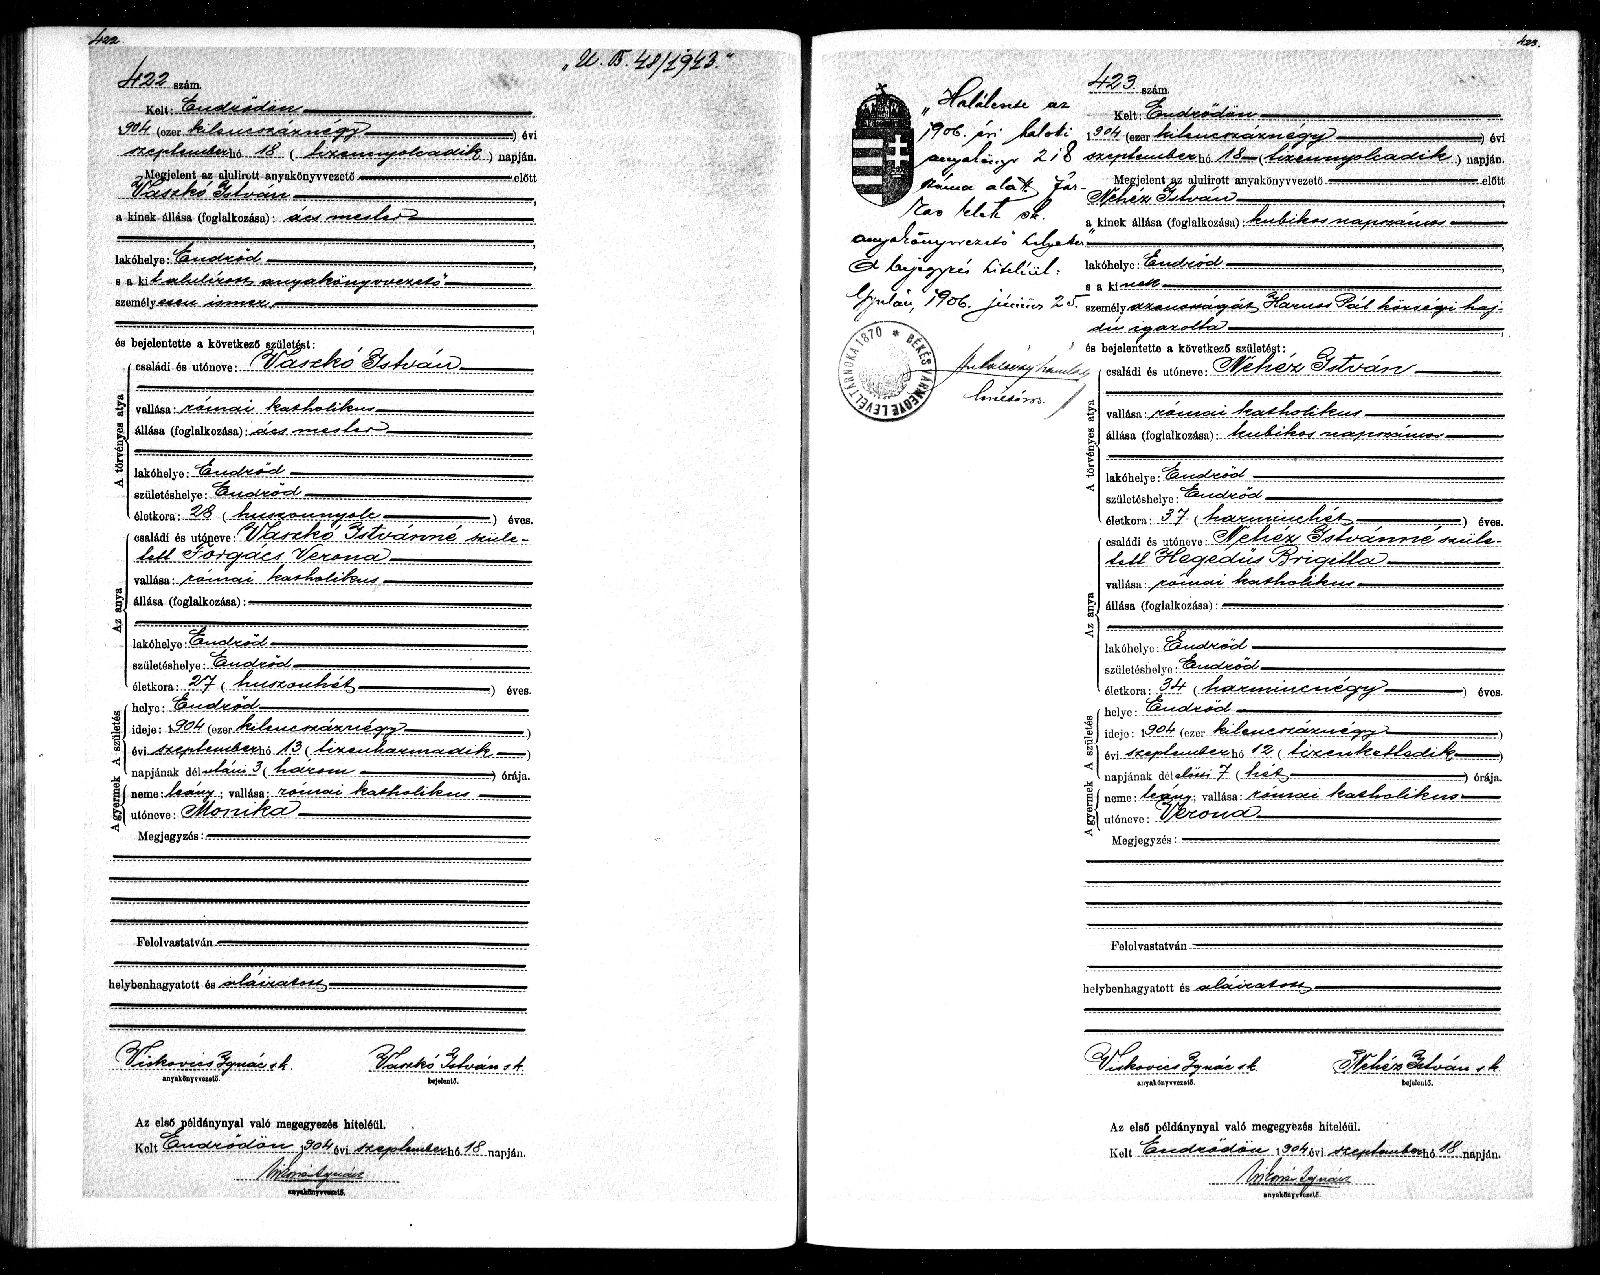 422
„U. B. 48/1943.”
422 szám.
Kelt: Endrődön
1904 (ezer kilencszáznégy) évi
szeptember hó 18 (tizennyolcadik) napján.
Megjelent az alulirott anyakönyvvezető előtt
Vaszkó István
a kinek állása (foglalkozása): ács mester
lakóhelye: Endrőd
s a kit alulírott anyakönyvvezető
személyesen ismer,
és bejelentette a következő születést:
A törvényes atya
családi és utóneve: Vaszkó István
vallása: római katholikus
állása (foglalkozása): ács mester
lakóhelye: Endrőd
születéshelye: Endrőd
életkora: 28 (huszonnyolc) éves.
Az anya
családi és utóneve: Vaszkó Istvánné szüle-
tett Forgács Verona
vallása: római katholikus
állása (foglalkozása):
lakóhelye: Endrőd
születéshelye: Endrőd
életkora: 27 (huszonhét) éves.
A születés
helye: Endrőd
ideje: 1904 (ezer kilencszáznégy)
évi szeptember hó 13 (tizenharmadik)
napjának délutáni 3 (három) órája.
A gyermek
neme: leány; vallása: római katholikus
utóneve: Monika
Megjegyzés:
Felolvastatván
helybenhagyatott és aláiratott
Viskovics Ignác sk. Vaszkó István sk.
anyakönyvvezető. bejelentő.
Az első példánynyal való megegyezés hiteléül.
Kelt Endrődön 1904 évi szeptember hó 18 napján.
anyakönyvvezető.
423.
„Halálesete az
1906. évi haloti
anyakönyv 218
száma alatt.
anyakönyvvezető helyettes
A bejegyzés hiteléül:
Gyulán, 1906. június 25.
BÉKÉSVÁRMEGYE LEVÉLTÁRNOKA 1870
423 szám.
Kelt: Endrődön
1904 (ezer kilencszáznégy) évi
szeptember hó 18 (tizennyolcadik) napján.
Megjelent az alulirott anyakönyvvezető előtt
Néhéz István
a kinek állása (foglalkozása): kubikos napszámos
lakóhelye: Endrőd
s a kinek
személyazonosságát Harnos Pál községi haj-
dú igazolta
és bejelentette a következő születést:
A törvényes atya
családi és utóneve: Néhéz István
vallása: római katholikus
állása (foglalkozása): kubikos napszámos
lakóhelye: Endrőd
születéshelye: Endrőd
életkora: 37 (harminchét) éves.
Az anya
családi és utóneve: Néhéz Istvánné szüle-
tett Hegedüs Brigitta
vallása: római katholikus
állása (foglalkozása):
lakóhelye: Endrőd
születéshelye: Endrőd
életkora: 34 (harmincnégy) éves.
A születés
helye: Endrőd
ideje: 1904 (ezer kilencszáznégy)
évi szeptember hó 12 (tizenkettedik)
napjának délelőtti 7 (hét) órája.
A gyermek
neme: leány; vallása: római katholikus
utóneve: Verona
Megjegyzés:
Felolvastatván
helybenhagyatott és aláiratott
Viskovics Ignác sk. Néhéz István sk.
anyakönyvvezető. bejelentő.
Az első példánynyal való megegyezés hiteléül.
Kelt Endrődön 1904 évi szeptember hó 18 napján.
anyakönyvvezető.